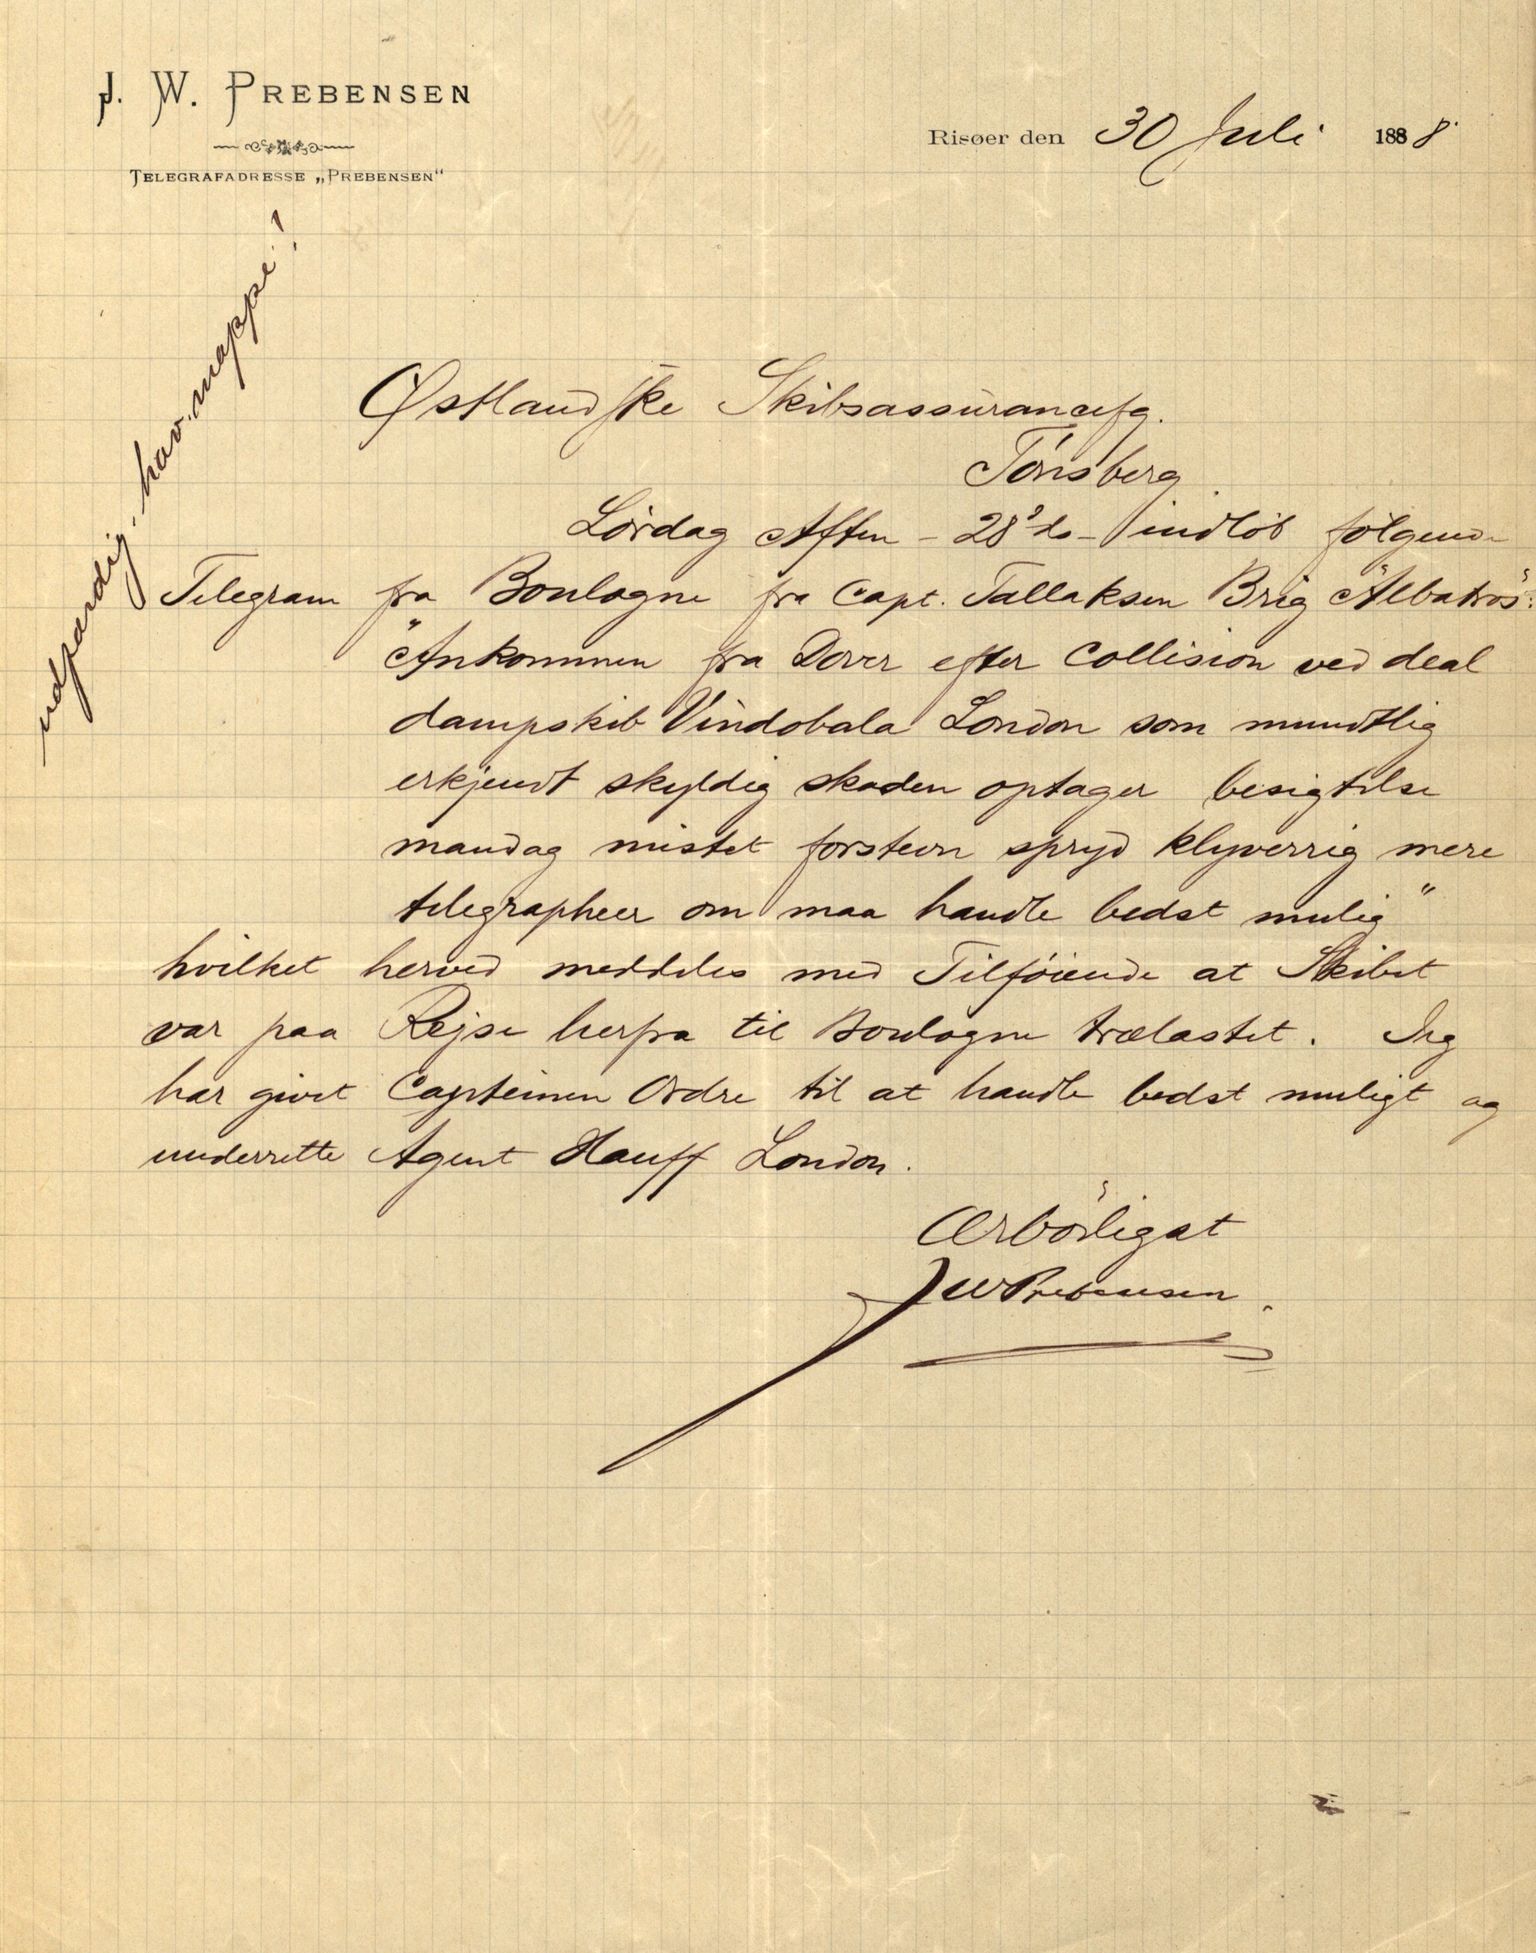 J. W. PREBENSEN
TELEGRAFADRESSE „PREBENSEN“
Risøer den 30 Juli 1888
Østlandske Skibsassurancefg.
Tönsberg.
Lørdag Aften – 28 ds – indlöb følgende
Telegram fra Boulogne fra Capt. Tallaksen Brig "Albatros":
"Ankommen fra Dover efter Collision ved deal
dampskib Vindobala London som mundtlig
erkjendt skyldig skaden optager besigtelse
mandag mistet forstevn spryd klyverrig mere
telegrapheer om maa handle bedst mulig"
hvilket herved meddeles med Tilföiende at Skibet
var paa Rejse herfra til Boulogne trælastet. Jeg
har givet Capteinen Ordre til at handle bedst muligt og
underrette Agent Hauff London.
Ærbödigst
JWPrebensen.
hav. mappe!